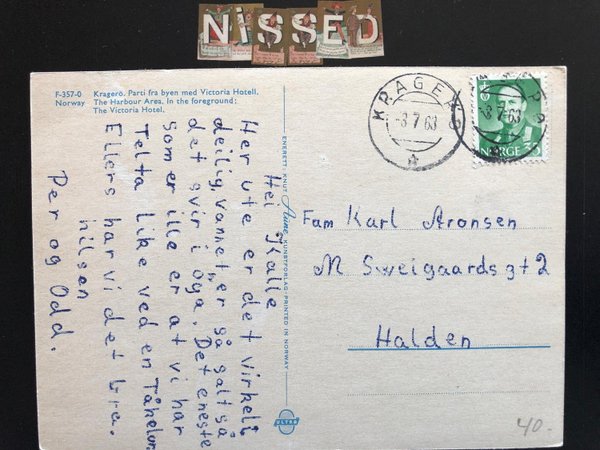 NiSSED
F-357-0 Kragerö. Parti fra byen med Victoria Hotell.
Norway The Harbour Area. In the foreground:
The Victoria Hotel.
Hei Kalle
Her ute er det virkeli
deilig, vannet er så galt så
det svir i öga. Det eneste
som er ille er at vi har
Telta like ved en Tåkelur
Ellers har vi det bra.
hilsen
Per og Odd.
ENERETT: KNUT Aune KUNSTFORLAG PRINTED IN NORWAY
ULTRA
KRAGERØ
-8 7 63
-8 7 63
NORGE 35
Fam Karl Aronsen
M Sweigaards gt 2
Halden
40.-